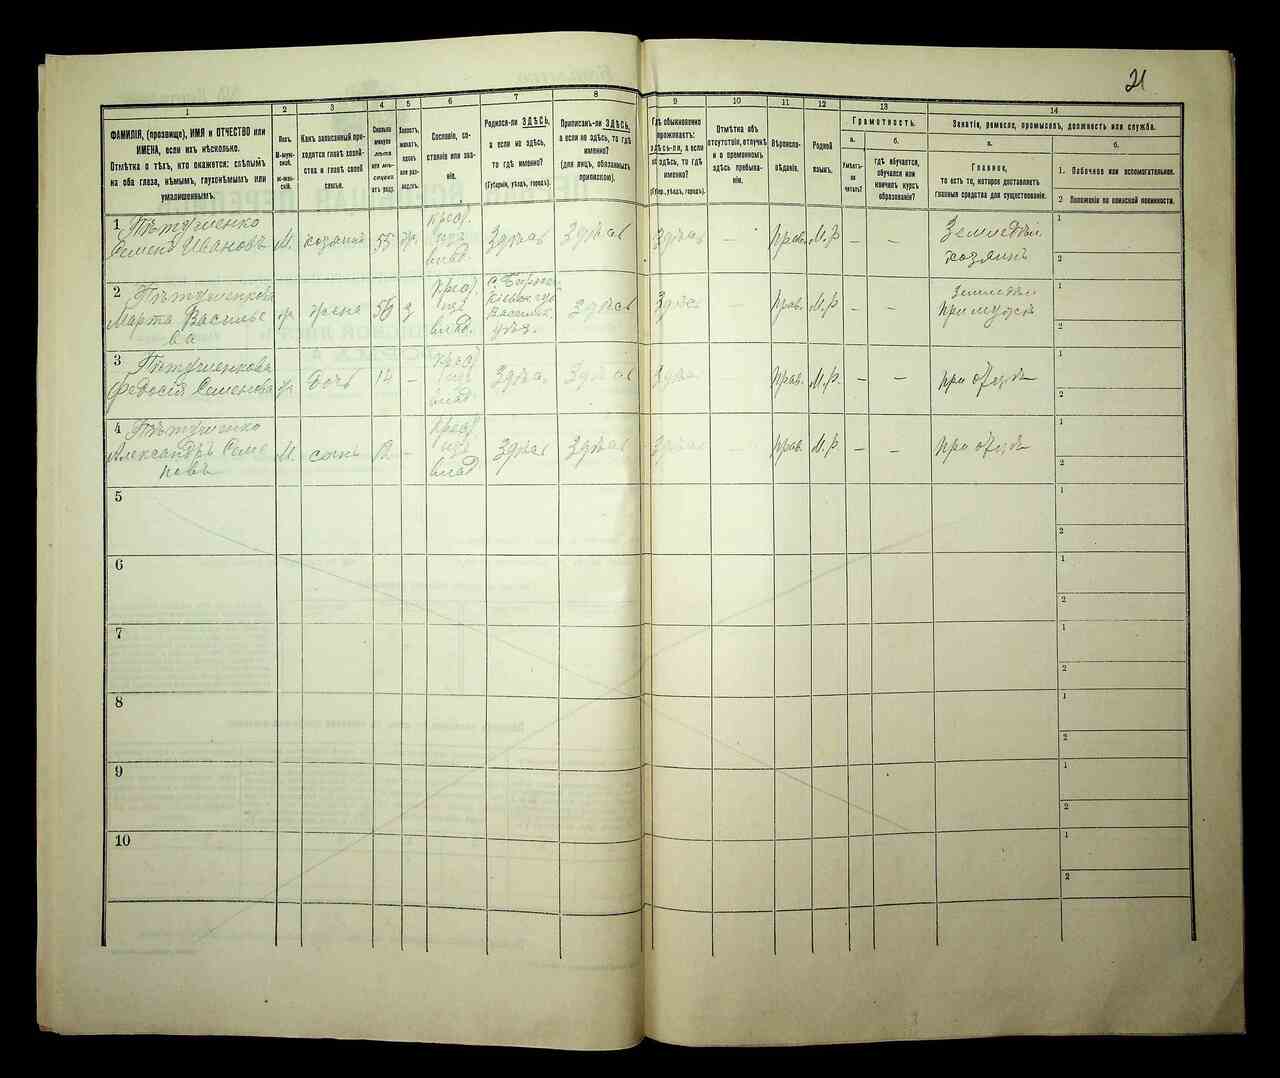 21
1
2
3
4
5
6
7
8
9
10
11
12
13
14
ФАМИЛІЯ, (прозвище), ИМЯ и ОТЧЕСТВО или
ИМЕНА, если ихъ нѣсколько.
Отмѣтка о тѣхъ, кто окажется: слѣпымъ
на оба глаза, нѣмымъ, глухонѣмымъ или
умалишеннымъ.
Полъ.
М-муж-
ской.
Ж-жен-
скій.
Какъ записанный при-
ходится главѣ хозяй-
ства и главѣ своей
семьи.
Сколько
минуло
лѣтъ
или мѣ-
сяцевъ
отъ роду.
Холостъ,
женатъ,
вдовъ
или раз-
веденъ.
Сословіе, со-
стояніе или зва-
ніе.
Родился-ли ЗДѢСЬ,
а если не здѣсь,
то гдѣ именно?
(Губернія, уѣздъ, городъ).
Приписанъ-ли ЗДѢСЬ,
а если не здѣсь, то гдѣ
именно?
(для лицъ, обязанныхъ
припискою).
Гдѣ обыкновенно
проживаетъ:
здѣсь-ли, а если
не здѣсь, то гдѣ
именно?
(Губерн., уѣздъ, городъ).
Отмѣтка объ
отсутствіи, отлучкѣ
и о временномъ
здѣсь пребыва-
ніи.
Вѣроиспо-
вѣданіе.
Родной
языкъ.
Грамотность.
а.
Умѣетъ-
ли
читать?
б.
гдѣ обучается,
обучался или
кончилъ курсъ
образованія?
Занятіе, ремесло, промыселъ, должность или служба.
а.
Главное,
то есть то, которое доставляетъ
главныя средства для существованія.
б.
1. Побочное или вспомогательное.
2 Положеніе по воинской повинности.
1
Семенъ Ивановъ
М.
хозяинъ
55
крес.
изъ
влад.
Здѣсь
Здѣсь
Здѣсь
—
Прав.
М.Р
—
—
Земледѣл
хозяинъ
1
2
2
Марта Василье
ва
ж
жена
крес.
изъ
влад.
уѣз.
здѣсь
Здѣсь
—
Прав.
М.Р
—
—
Земледѣл
при мужѣ
1
2
3
Федосія Семенова
ж
Дочь
14
—
крес.
изъ
влад.
Здѣсь
Здѣсь
Здѣсь
Прав.
М.Р.
—
—
при отцѣ
1
2
4
Александръ Семе
новъ
М.
сынъ
12
—
крес.
изъ
влад
Здѣсь
Здѣсь
Здѣсь
Прав.
М.Р.
—
—
при отцѣ
1
2
5
1
2
6
1
2
7
1
2
8
1
2
9
1
2
10
1
2